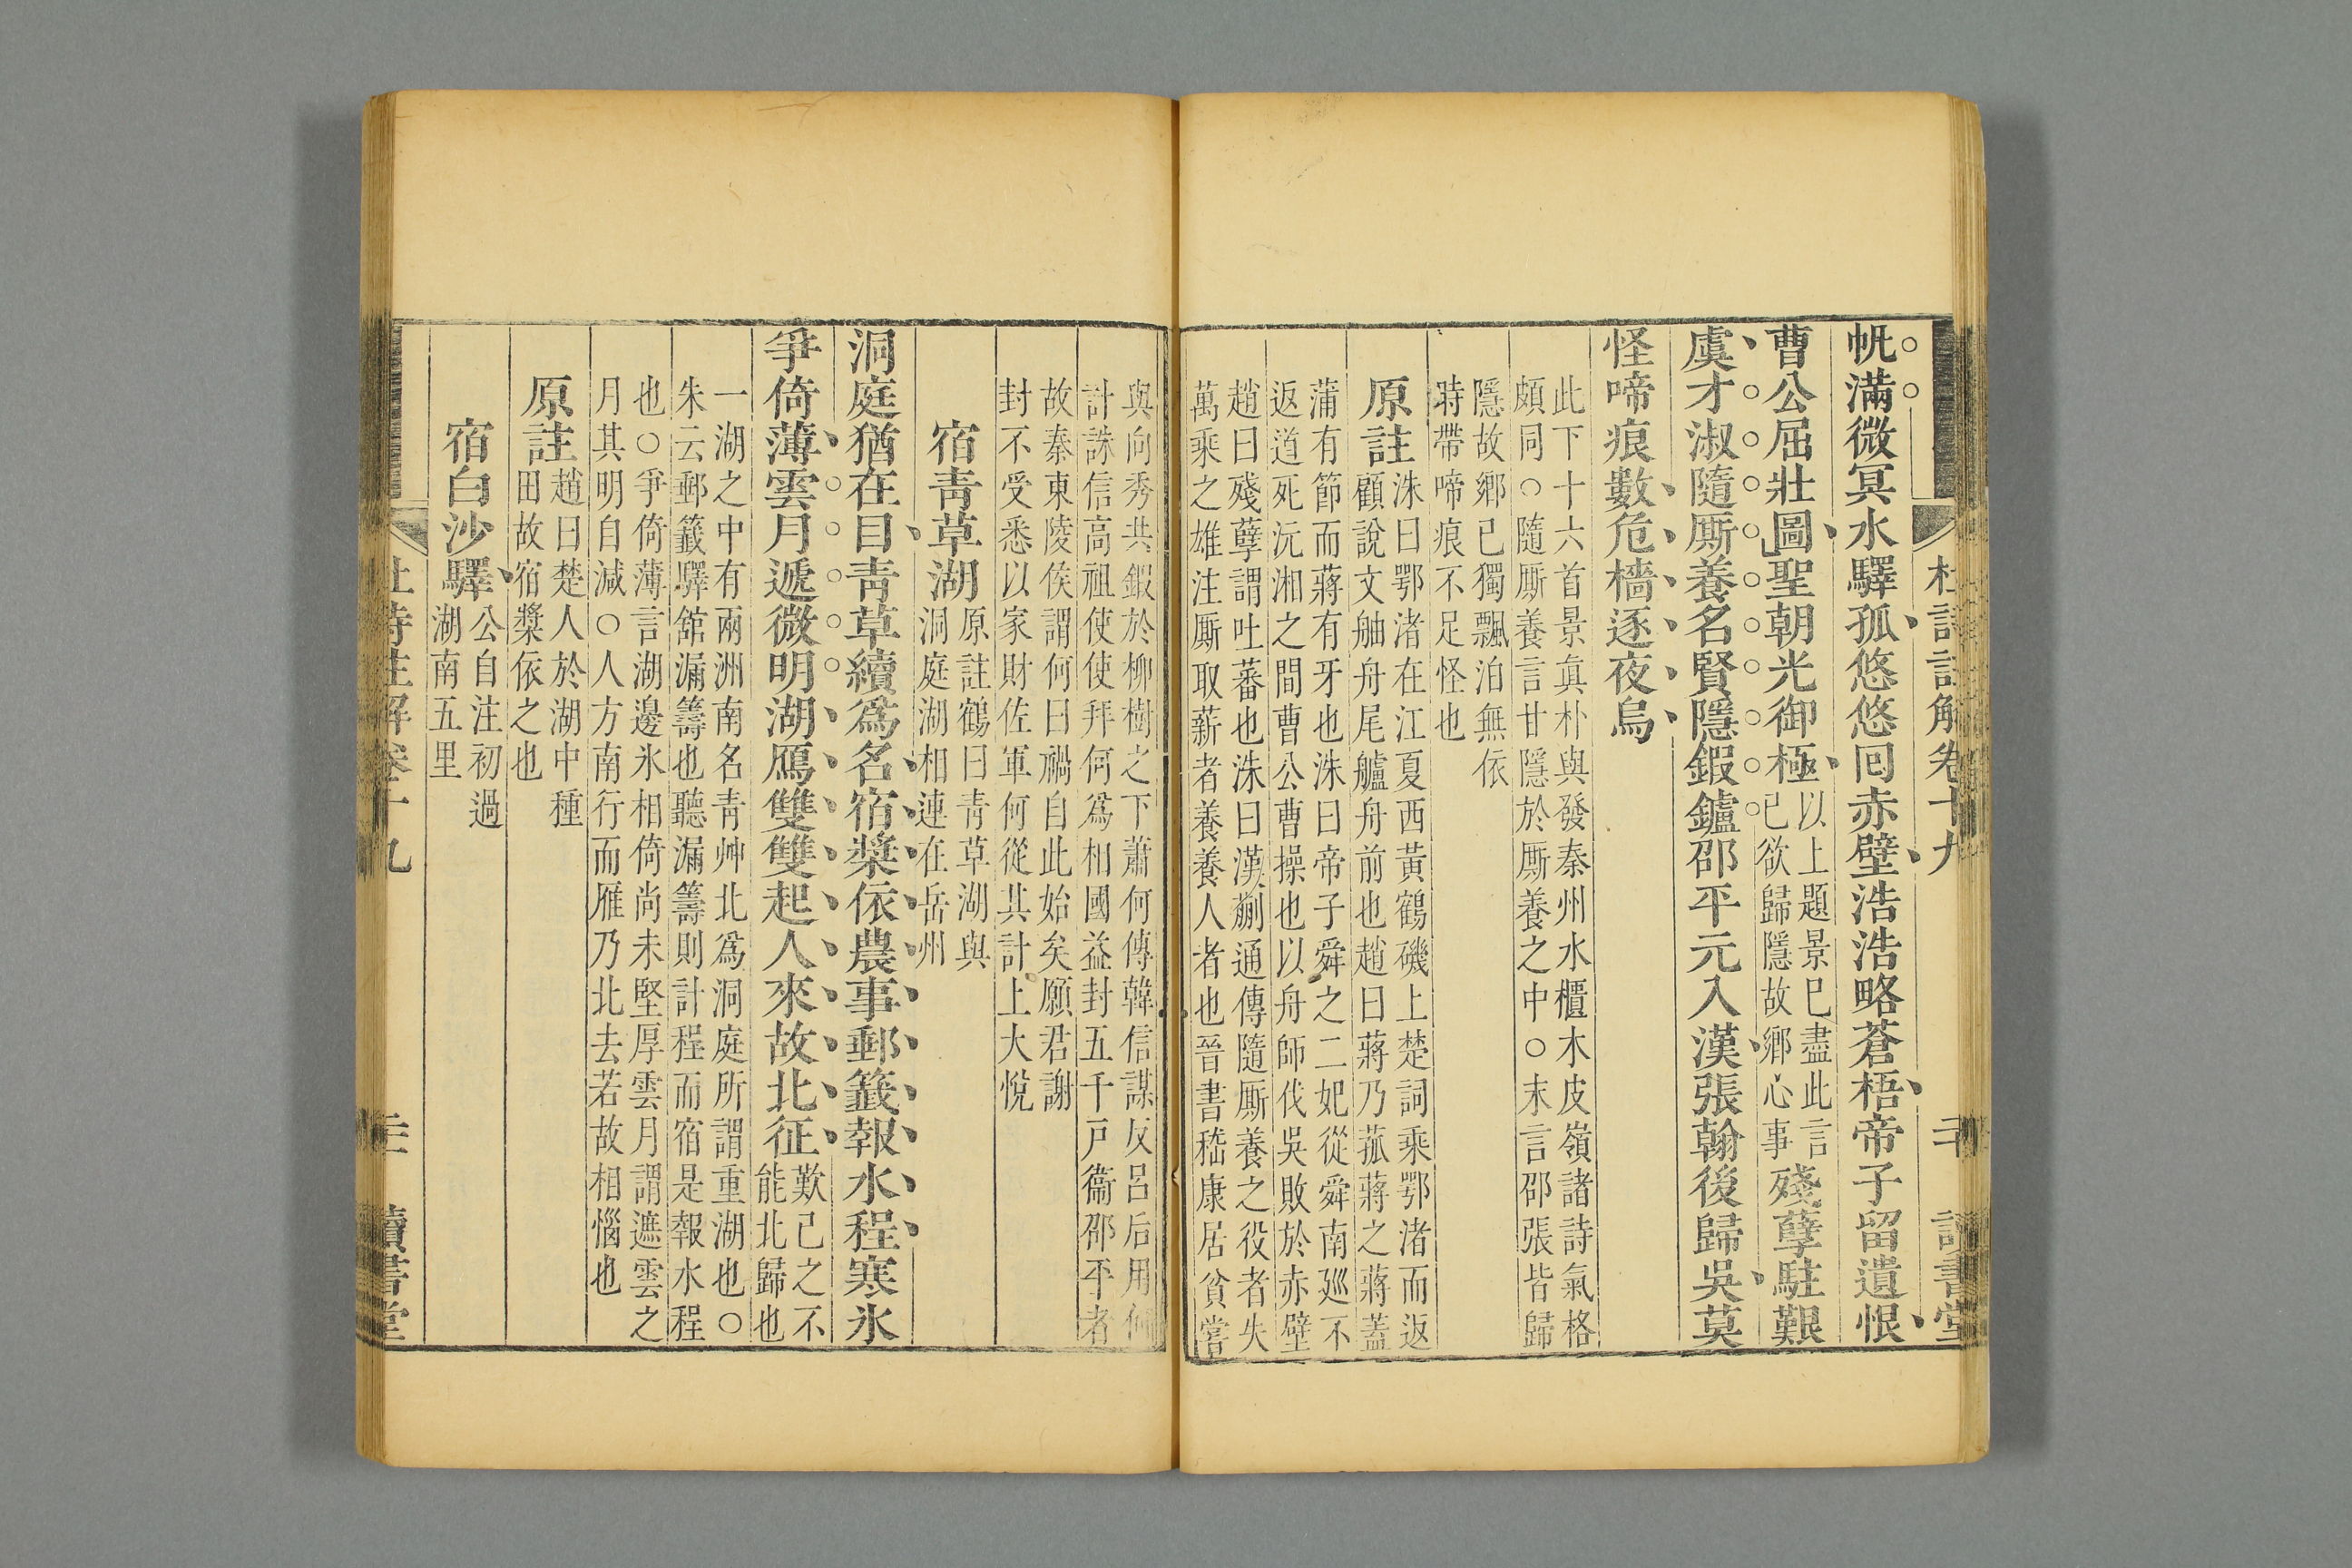 帆滿微冥水驛孤悠悠囘赤壁浩浩略蒼梧帝子留遺恨
曹公屈壯圖聖朝光御極以上題景已盡此言
已欲歸隱故鄉心事殘孽駐艱
虞才淑隨厮養名賢隱鍜鑪邵平元入漢張翰後歸吳莫
怪啼痕數危檣逐夜烏
此下十六首景真朴與發秦州水櫃木皮嶺諸詩氣格
頗同○隨厮養言甘隱於厮養之中○末言邵張皆歸
隱故鄉已獨飄泊無依
時帶啼痕不足怪也
原註洙曰鄂渚在江夏西黃鶴磯上楚詞乘鄂渚而返
顧說文舳舟尾艫舟前也趙曰蔣乃菰蔣之蔣蓋
蒲有節而蔣有牙也洙曰帝子舜之二妃從舜南廵不
返道死沅湘之間曹公曹操也以舟師伐吳敗於赤壁
趙曰殘孽謂吐蕃也洙曰漢蒯通傳隨厮養之役者失
萬乘之雄注厮取薪者養養人者也晉書嵇康居貧嘗
與向秀共鍜於柳樹之下蕭何傳韓信謀反呂后用何
計誅信高祖使使拜何為相國益封五千戸衞邵平者
故秦東陵侯謂何曰禍自此始矣願君謝
封不受悉以家財佐軍何從其計上大悅
宿靑草湖原註鶴曰靑草湖與
洞庭湖相連在岳州
洞庭猶在目靑草續爲名宿槳依農事郵籤報水程寒氷
爭倚薄雲月遞微明湖鴈雙雙起人來故北征歎己之不
能北歸也
一湖之中有兩洲南名靑艸北爲洞庭所謂重湖也○
朱云郵籤驛舘漏籌也聽漏籌則計程而宿是報水程
也○爭倚薄言湖邊氷相倚尚未堅厚雲月謂遮雲之
月其明自減○人方南行而雁乃北去若故相惱也
原註趙曰楚人於湖中種
田故宿槳依之也
宿白沙驛公自注初過
湖南五里